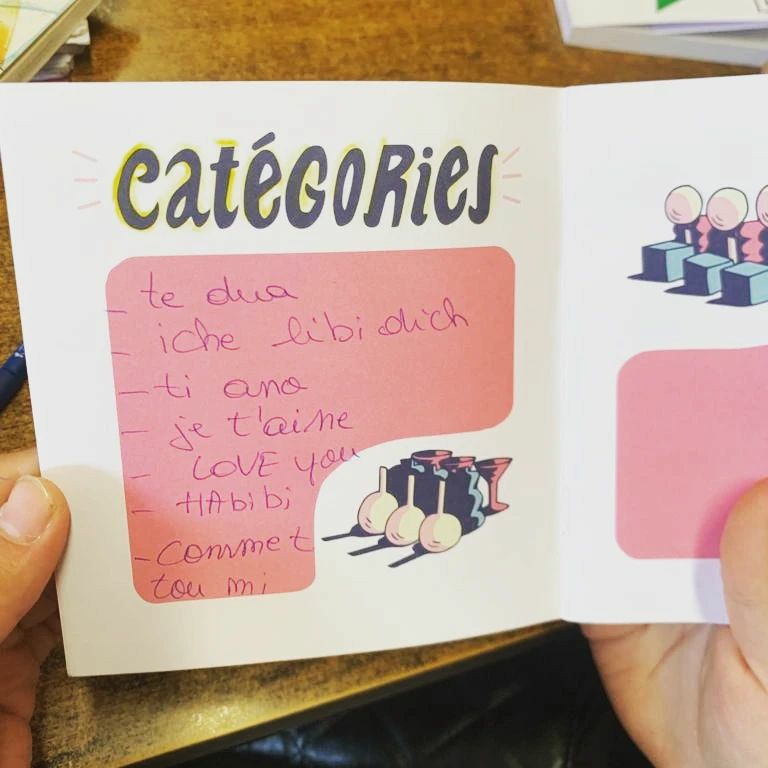 catégories
- te dua
- iche libi dich
- ti ano
- je t'aime
- LOVE you
- HAbibi
- Commet
tou mi